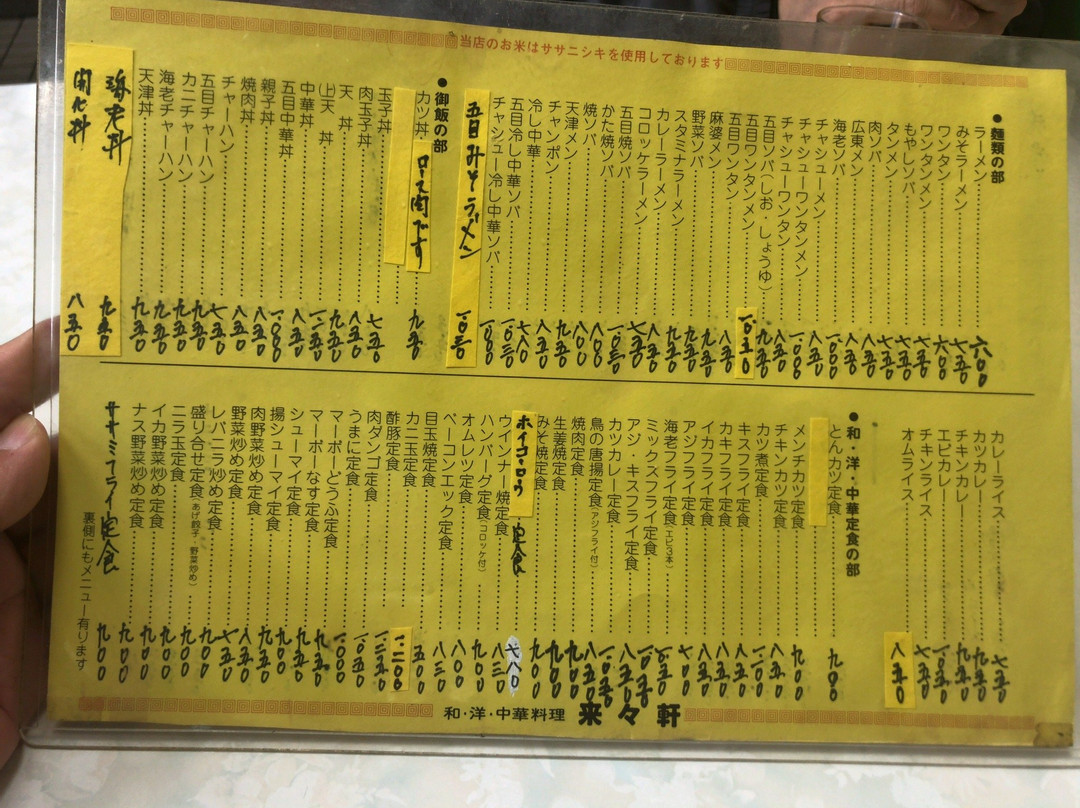 当店のお米はササニシキを使用しております
●麺類の部
ラーメン 六〇〇
みそラーメン 七五〇
ワンタン 六〇〇
ワンタンメン 七五〇
もやしソバ 七五〇
タンメン 七五〇
肉ソバ 八五〇
広東メン 八五〇
海老ソバ 一〇〇〇
チャシューメン 八五〇
チャシューワンタンメン 一〇〇〇
チャシューワンタン 八五〇
五目ソバ(しお・しょうゆ) 九五〇
五目ワンタンメン 一〇五〇
五目ワンタン 八五〇
麻婆メン 九五〇
野菜ソバ
スタミナラーメン 九五〇
カレーラーメン 八五〇
コロッケラーメン 七五〇
五目焼ソバ 一〇五〇
かた焼ソバ 八〇〇
焼ソバ 八〇〇
天津メン 九五〇
チャンポン 八五〇
冷し中華
五目冷し中華ソバ 一〇五〇
チャシュー冷し中華ソバ 一〇〇〇
五目みそラーメン 一〇五〇
●御飯の部
カツ丼 ロース肉です 九五〇
玉子丼 七五〇
肉玉子丼 八五〇
天丼 九五〇
(上)天丼 一二五〇
中華丼 八五〇
五目中華丼 一〇〇〇
親子丼 八五〇
焼肉丼 八五〇
チャーハン 七五〇
五目チャーハン 九五〇
カニチャーハン 九五〇
海老チャーハン 九五〇
天津丼 九五〇
海老丼 九五〇
開化丼 八五〇
カレーライス 七五〇
カツカレー 九五〇
チキンカレー 九五〇
エビカレー 一〇五〇
チキンライス 七五〇
オムライス 八五〇
●和・洋・中華定食の部
とんカツ定食 九〇〇
メンチカツ定食 九〇〇
チキンカツ定食 八五〇
カツ煮定食 一一〇〇
キスフライ定食 八五〇
カキフライ定食 八五〇
イカフライ定食 八五〇
アジフライ定食
海老フライ定食(エビ3本) 一〇五〇
ミックスフライ定食 一〇五〇
アジ・キスフライ定食 八五〇
カツカレー定食 一〇五〇
鳥の唐揚定食(アジフライ付) 八五〇
焼肉定食 九〇〇
生姜焼定食 九〇〇
みそ焼定食 九〇〇
ホイコーロウ定食 七八〇
ウインナー焼定食 八三〇
ハンバーグ定食(コロッケ付) 九〇〇
オムレツ定食 八〇〇
ベーコンエック定食 八三〇
目玉焼定食
カニ玉定食 一二〇〇
酢豚定食 一二五〇
肉ダンゴ定食 一〇五〇
うまに定食 一〇〇〇
マーボーどうふ定食 九五〇
マーボーなす定食 九五〇
シューマイ定食 九〇〇
揚シューマイ定食 九五〇
肉野菜炒め定食 八五〇
野菜炒め定食 七五〇
レバニラ炒め定食 九〇〇
盛り合せ定食(あげ餃子・野菜炒め) 九〇〇
ニラ玉定食 九〇〇
イカ野菜炒め定食 九〇〇
ナス野菜炒め定食 九〇〇
ササミフライ定食 九〇〇
裏側にもメニュー有ります
和・洋・中華料理 来々軒